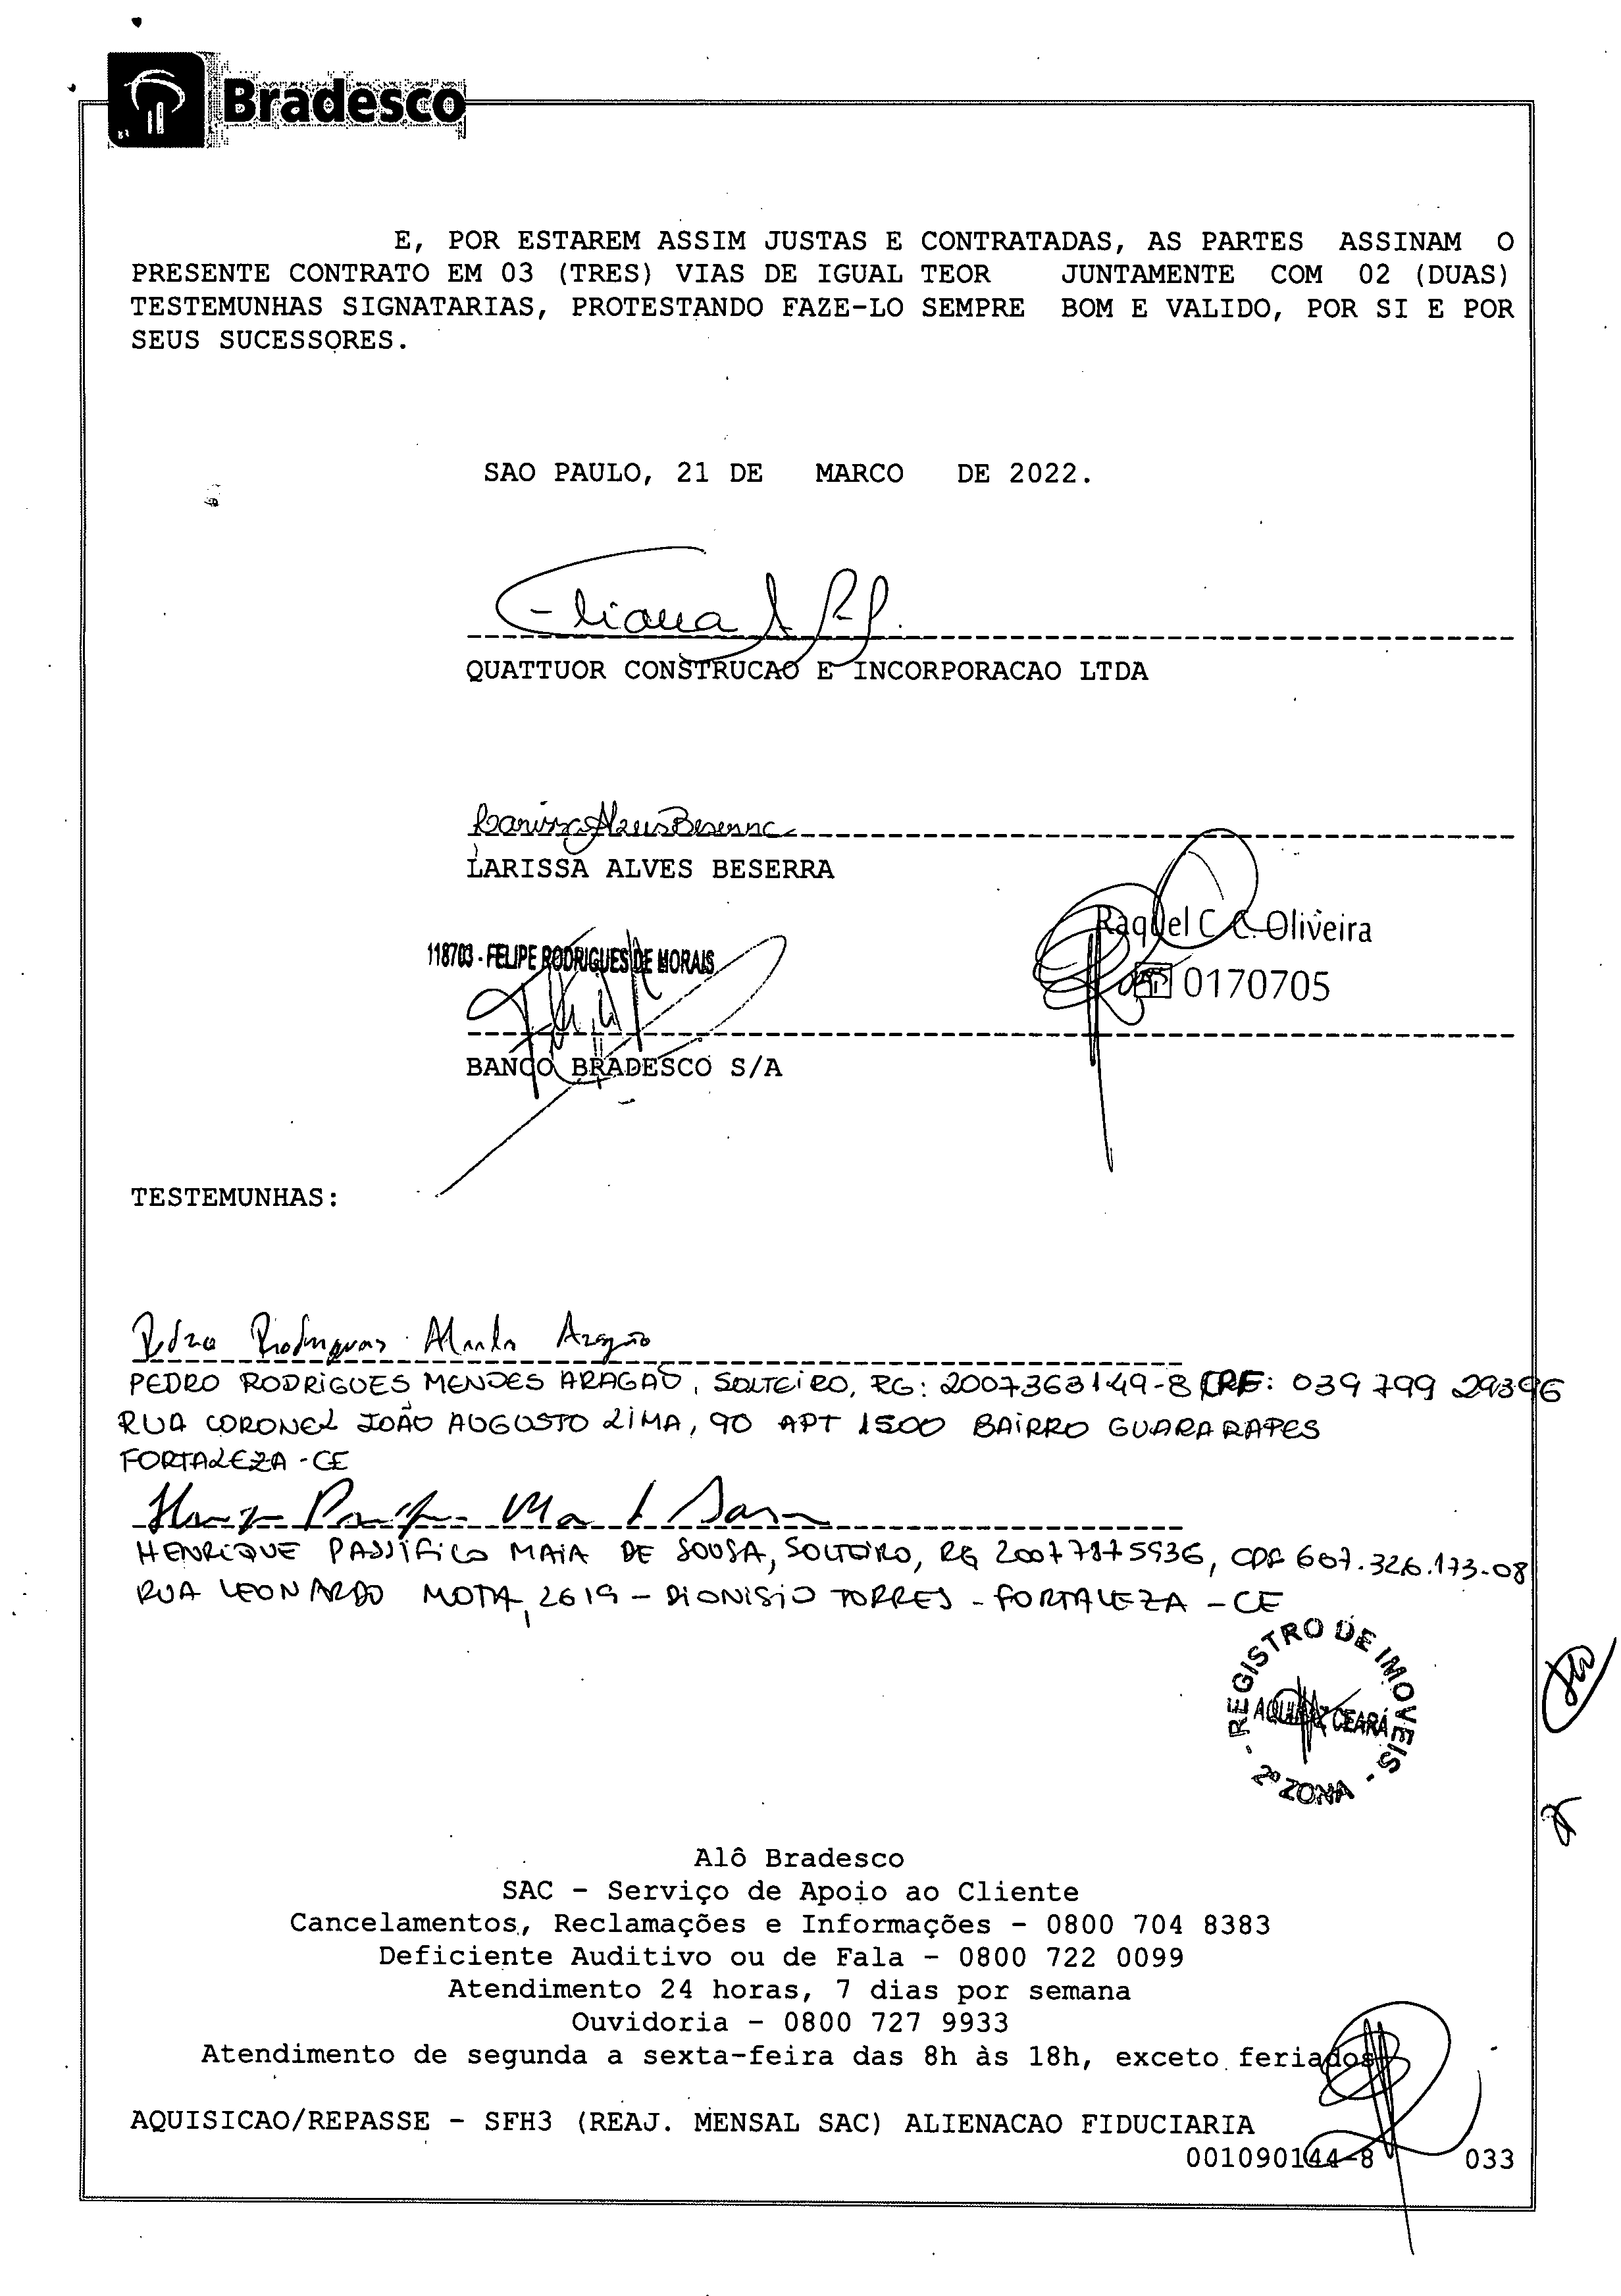 Bradesco
E, POR ESTAREM ASSIM JUSTAS E CONTRATADAS, AS PARTES ASSINAM O
PRESENTE CONTRATO EM 03 (TRES) VIAS DE IGUAL TEOR JUNTAMENTE COM 02 (DUAS)
TESTEMUNHAS SIGNATARIAS, PROTESTANDO FAZE-LO SEMPRE BOM E VALIDO, POR SI E POR
SEUS SUCESSORES.
SAO PAULO, 21 DE MARCO DE 2022.
Eliana
QUATTUOR CONSTRUCAO E INCORPORACAO LTDA
Larissa Alves Beserra
LARISSA ALVES BESERRA
118703 - FELIPE RODRIGUES DE MORAIS
Raquel C. C. Oliveira
0170705
BANCO BRADESCO S/A
TESTEMUNHAS:
Pedro Rodrigues Mendes Aragão
PEDRO RODRIGUES MENDES ARAGAO, SOLTEIRO, RG: 2007363149-8 CPF: 039 799 293
RUA CORONEL JOÃO AUGUSTO LIMA, 90 APT 1500 BAIRRO GUARARAPES
FORTALEZA - CE
HENRIQUE PASSIFICO MAIA DE SOUSA, SOLTEIRO, RG 20077875936, CPF 607.326.173-08
RUA LEONARDO MOTA, 2619 - DIONISIO TORRES - FORTALEZA - CE
- REGISTRO DE IMOVEIS -
AQUIRAZ CEARÁ
2º ZONA
Alô Bradesco
SAC - Serviço de Apoio ao Cliente
Cancelamentos, Reclamações e Informações - 0800 704 8383
Deficiente Auditivo ou de Fala - 0800 722 0099
Atendimento 24 horas, 7 dias por semana
Ouvidoria - 0800 727 9933
Atendimento de segunda a sexta-feira das 8h às 18h, exceto feriados
AQUISICAO/REPASSE - SFH3 (REAJ. MENSAL SAC) ALIENACAO FIDUCIARIA
001090144-8 033